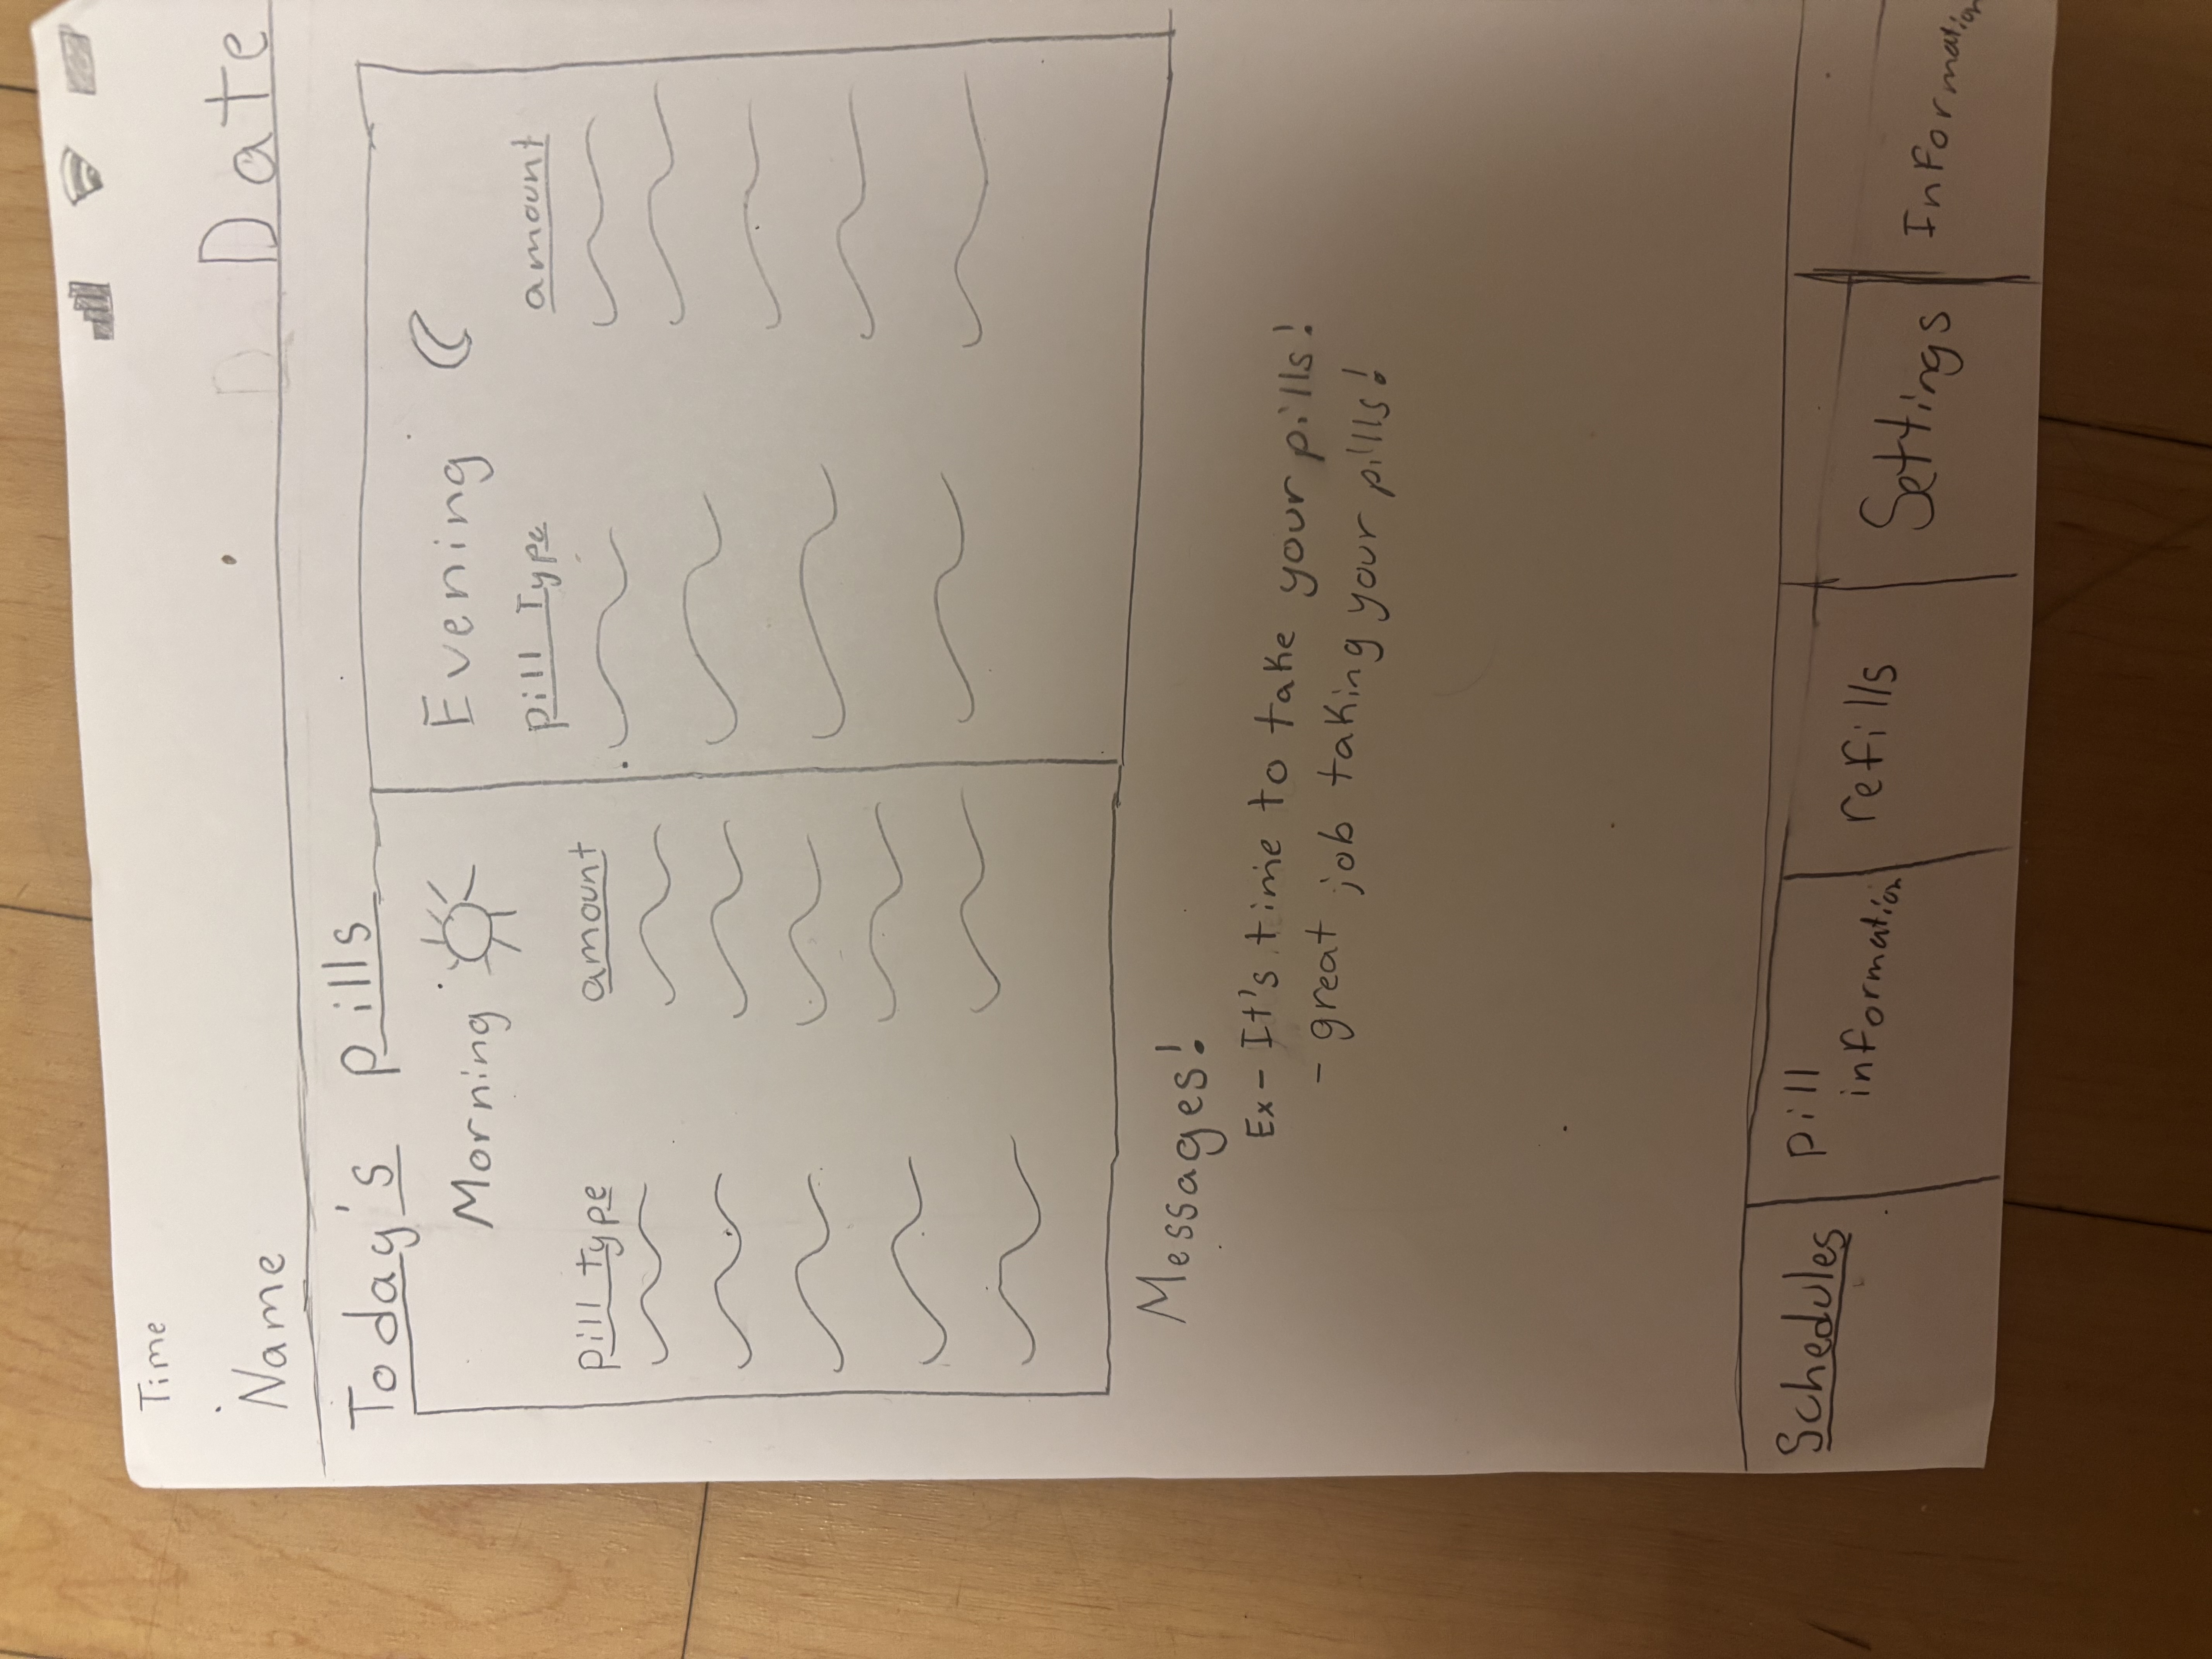 Time
Name Date
Today's pills
Morning Evening
pill type amount pill Type amount
Messages!
Ex- It's time to take your pills!
- great job taking your pills!
Schedules pill information refills Settings Information